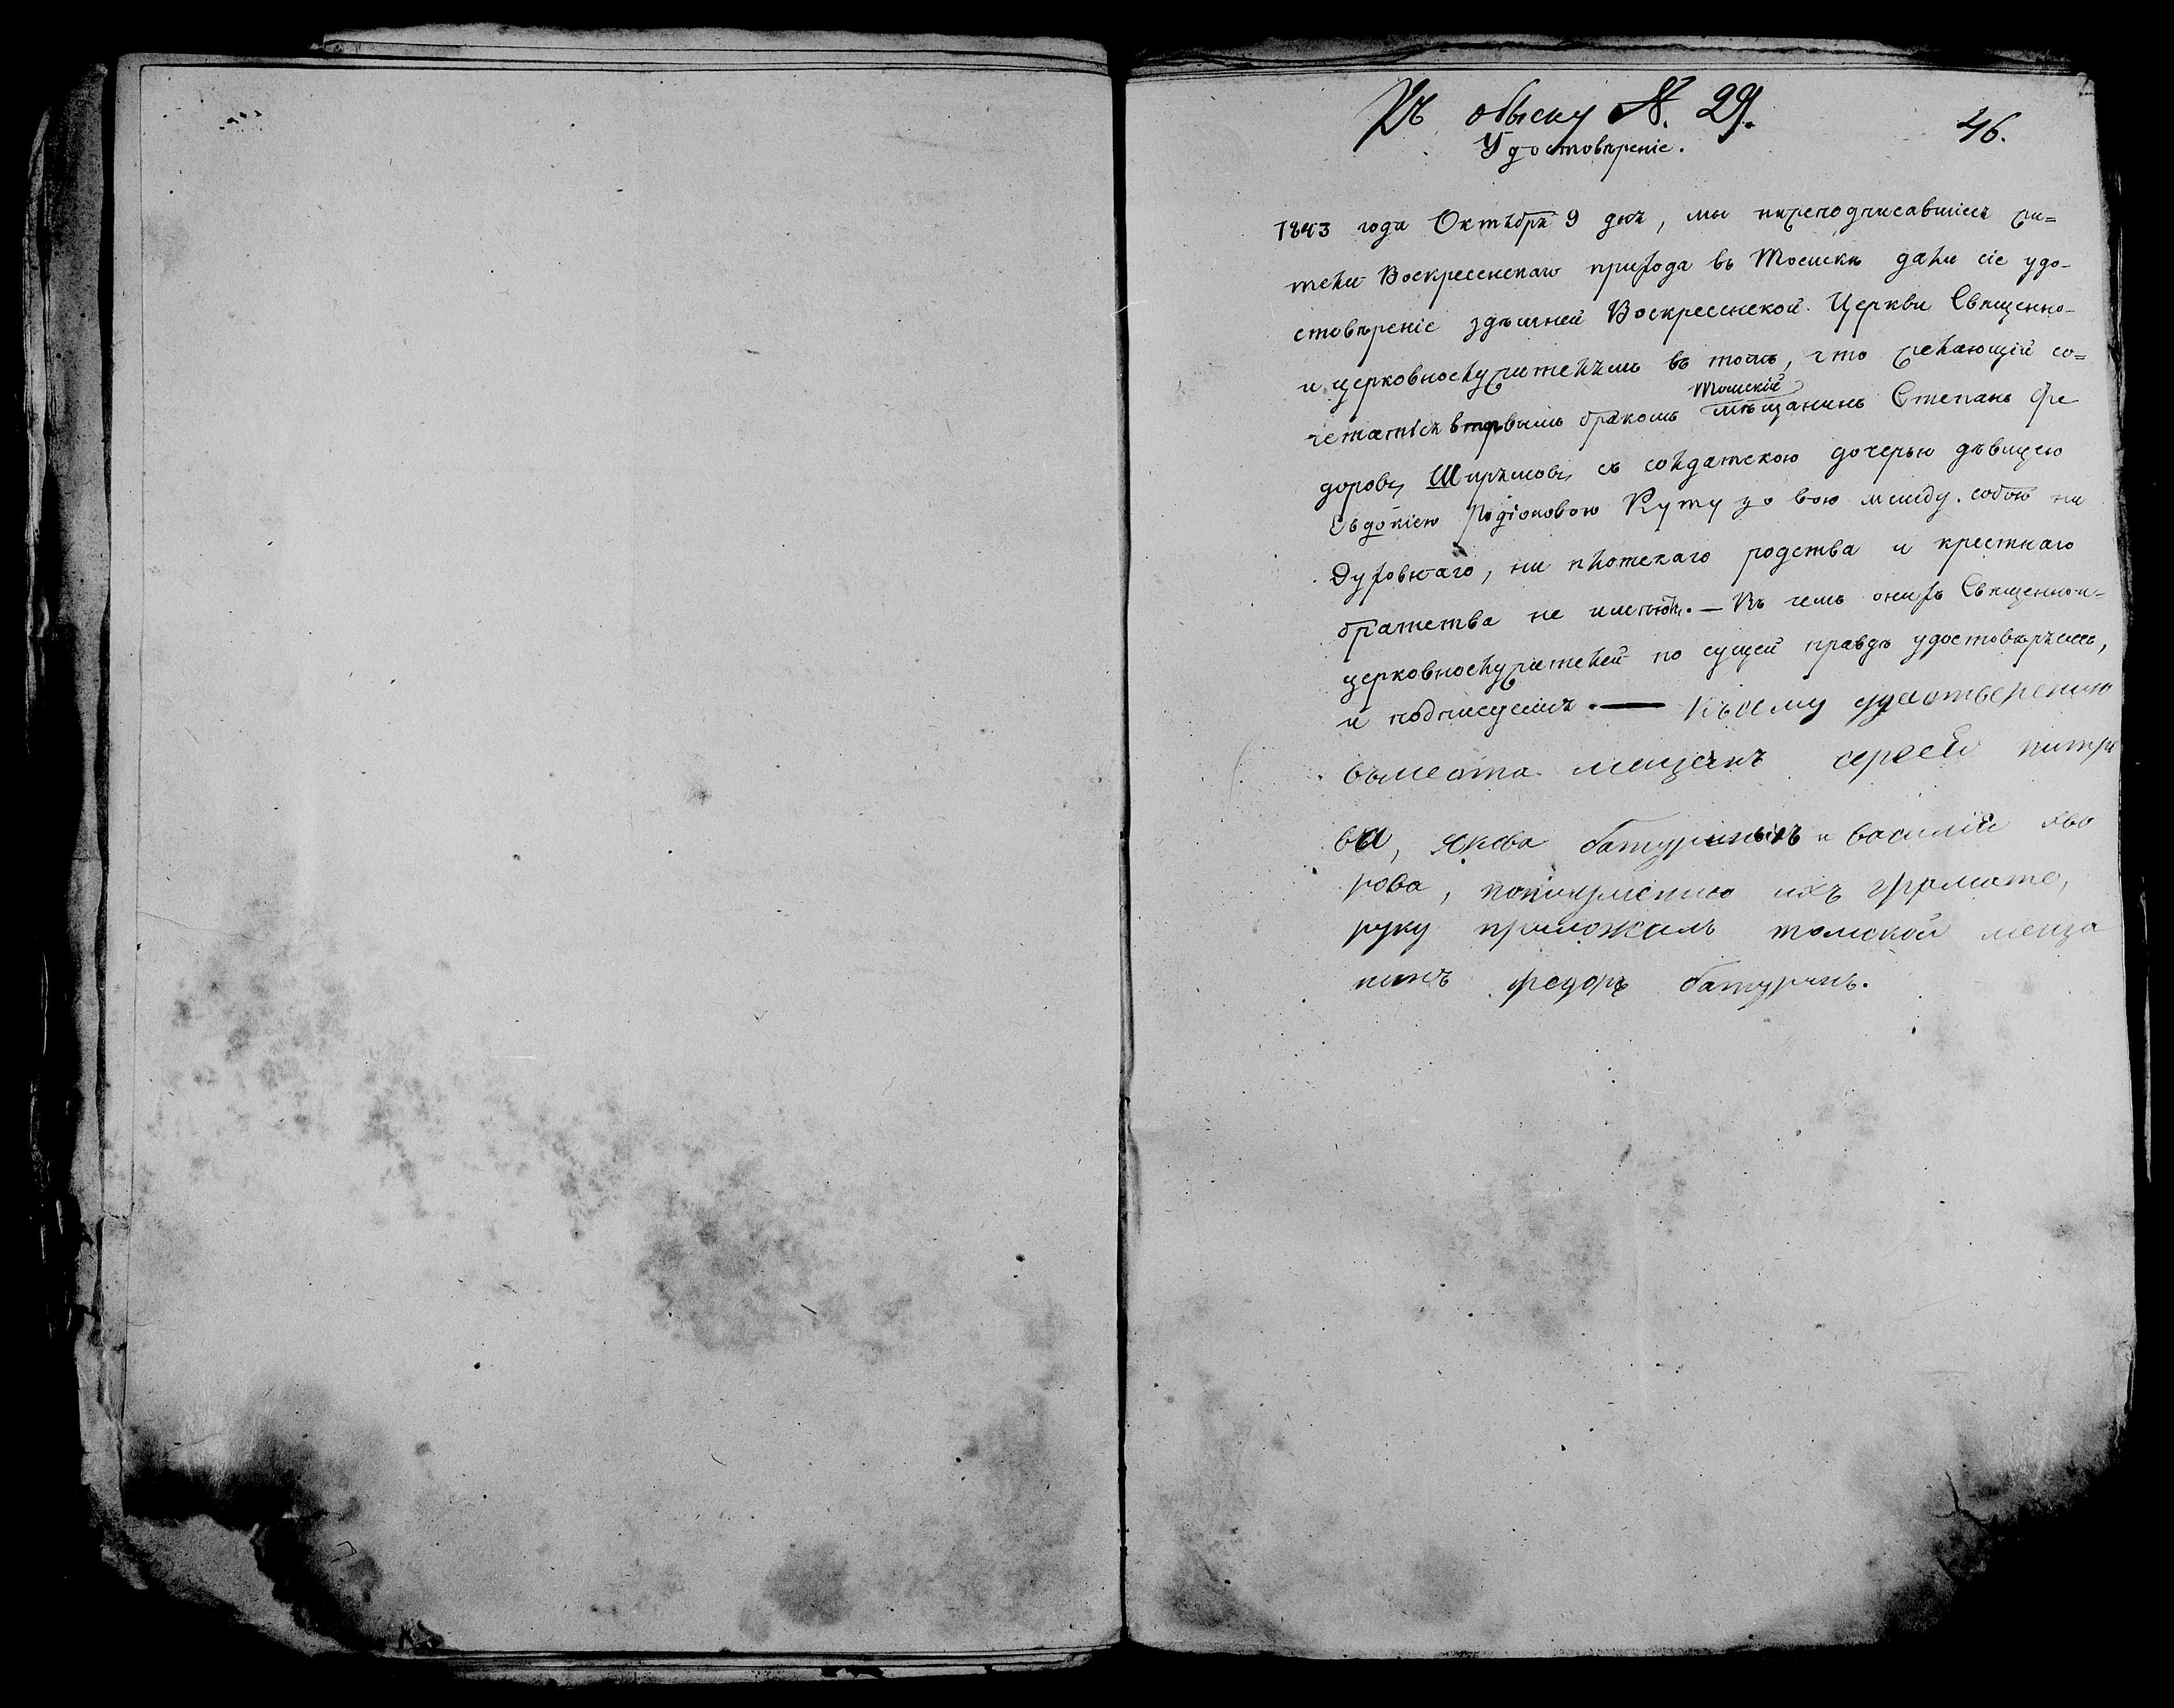 Къ обыску №. 29.
46.
Удостовѣреніе.
1843 года Октября 9 дня, мы нижеподписавшіеся жи=
тели Воскресенскаго прихода въ Томскѣ дали сіе удо-
стовѣреніе здѣшней Воскресенской Церкви Священно-
и церковнослужителямъ въ томъ, что желающій со=
Томскій
четаться первымъ бракомъ мѣщанинъ Степанъ Фе
доровъ Ширяловъ съ солдатскою дочерью дѣвицею
Евдокіею Родіоновою Кутузовою между собою ни
Духовнаго, ни плотскаго родства и крестнаго
братства не имѣютъ. — Въ чемъ онихъ Священнои-
церковнослужителей по сущей правдѣ удостовѣряемъ,
и подписуемся. — Къ сему удостоверению
въместа мещанъ сергея питро
ва, якова батуриныхъ и василия яво
рова, понеумению ихъ грамате,
руку приложилъ томской меща
нинъ федоръ батуринъ.